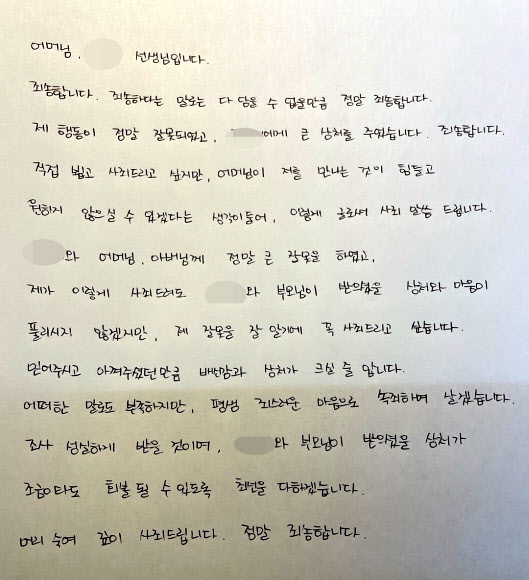 어머님, 선생님입니다.
죄송합니다. 죄송하다는 말로는 다 담을 수 없을만큼 정말 죄송합니다.
제 행동이 정말 잘못되었고, 에게 큰 상처를 주었습니다. 죄송합니다.
직접 뵙고 사죄드리고 싶지만, 어머님이 저를 만나는 것이 힘들고
원하지 않으실 수 있겠다는 생각이 들어, 이렇게 글로써 사죄 말씀 드립니다.
와 어머님, 아버님께 정말 큰 잘못을 하였고,
제가 이렇게 사죄드려도 와 부모님이 받으셨을 상처와 마음이
풀리시지 않겠지만, 제 잘못을 잘 알기에 꼭 사죄드리고 싶습니다.
믿어주시고 아껴주셨던만큼 배반감과 상처가 크실 줄 압니다.
어떠한 말로도 부족하지만, 평생 죄스러운 마음으로 속죄하며 살겠습니다.
조사 성실하게 받을 것이며, 와 부모님이 받으셨을 상처가
조금이라도 회복 될 수 있도록 최선을 다하겠습니다.
머리 숙여 깊이 사죄드립니다. 정말 죄송합니다.